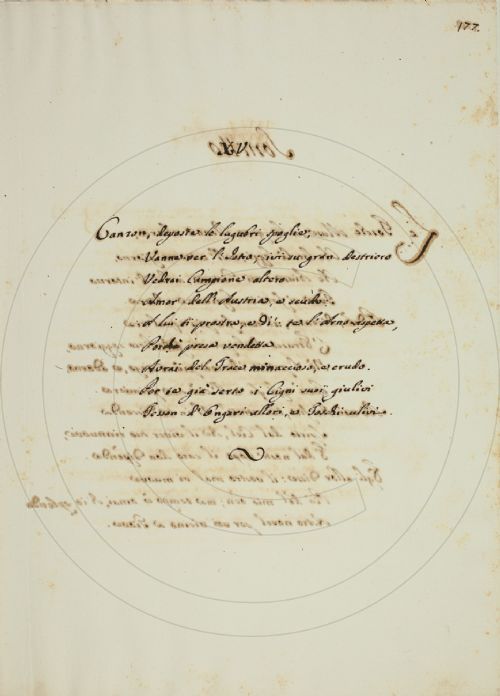 177.
XV.
Canzon, deposte le lugubri spoglie,
Vanne per l'Istro; ivi su gran destriero
Vedrai Campione altero
Amor dell'Austria, e scudo.
A lui ti prostra, e Di: te l'Arno aspetta,
Poichè presa vendetta
Avrai del Trace minaccioso, e crudo.
Per te già serto i Cigni suoi giulivi
Tesson d'Ungari allori, e Toschi ulivi.